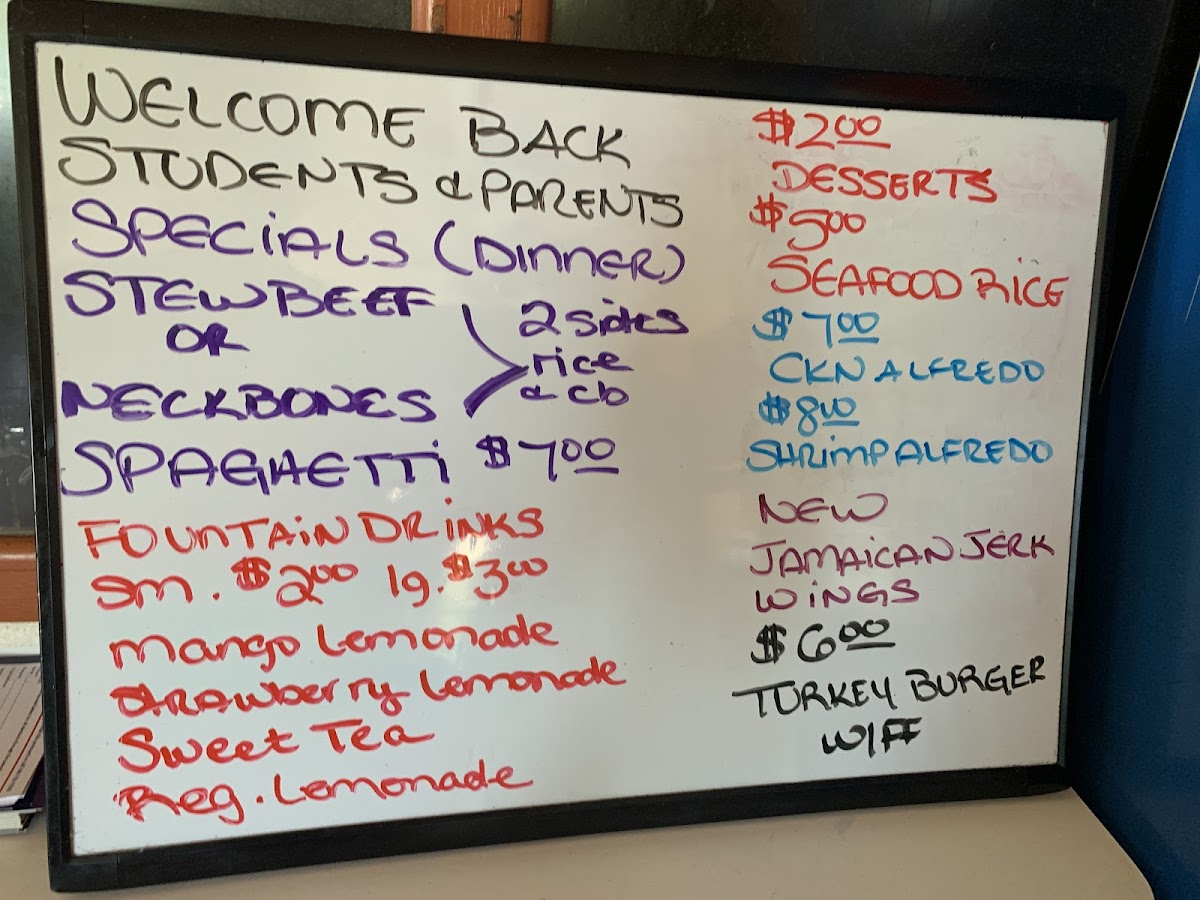 WELCOME BACK
STUDENTS & PARENTS
SPECIALS (DINNER)
STEW BEEF
OR
NECKBONES
2 sides
rice
& cb
SPAGHETTI $7.00
FOUNTAIN DRINKS
Sm. $2.00 lg. $3.00
Mango Lemonade
Strawberry Lemonade
Sweet Tea
Reg. Lemonade
$2.00
DESSERTS
$5.00
SEAFOOD RICE
$7.00
CKN ALFREDO
$8.00
SHRIMP ALFREDO
NEW
JAMAICAN JERK
WINGS
$6.00
TURKEY BURGER
W/FF